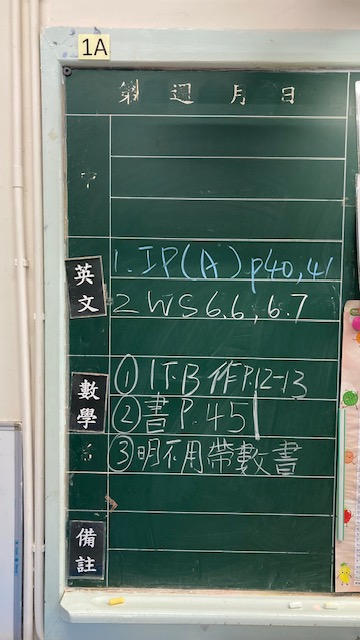 1A
第 週 月 日
中
英文
1. IP(A) p40,41
2 WS 6.6, 6.7
數學
① 1下B 作P.12-13
② 書P.45
③ 明不用帶數書
備註